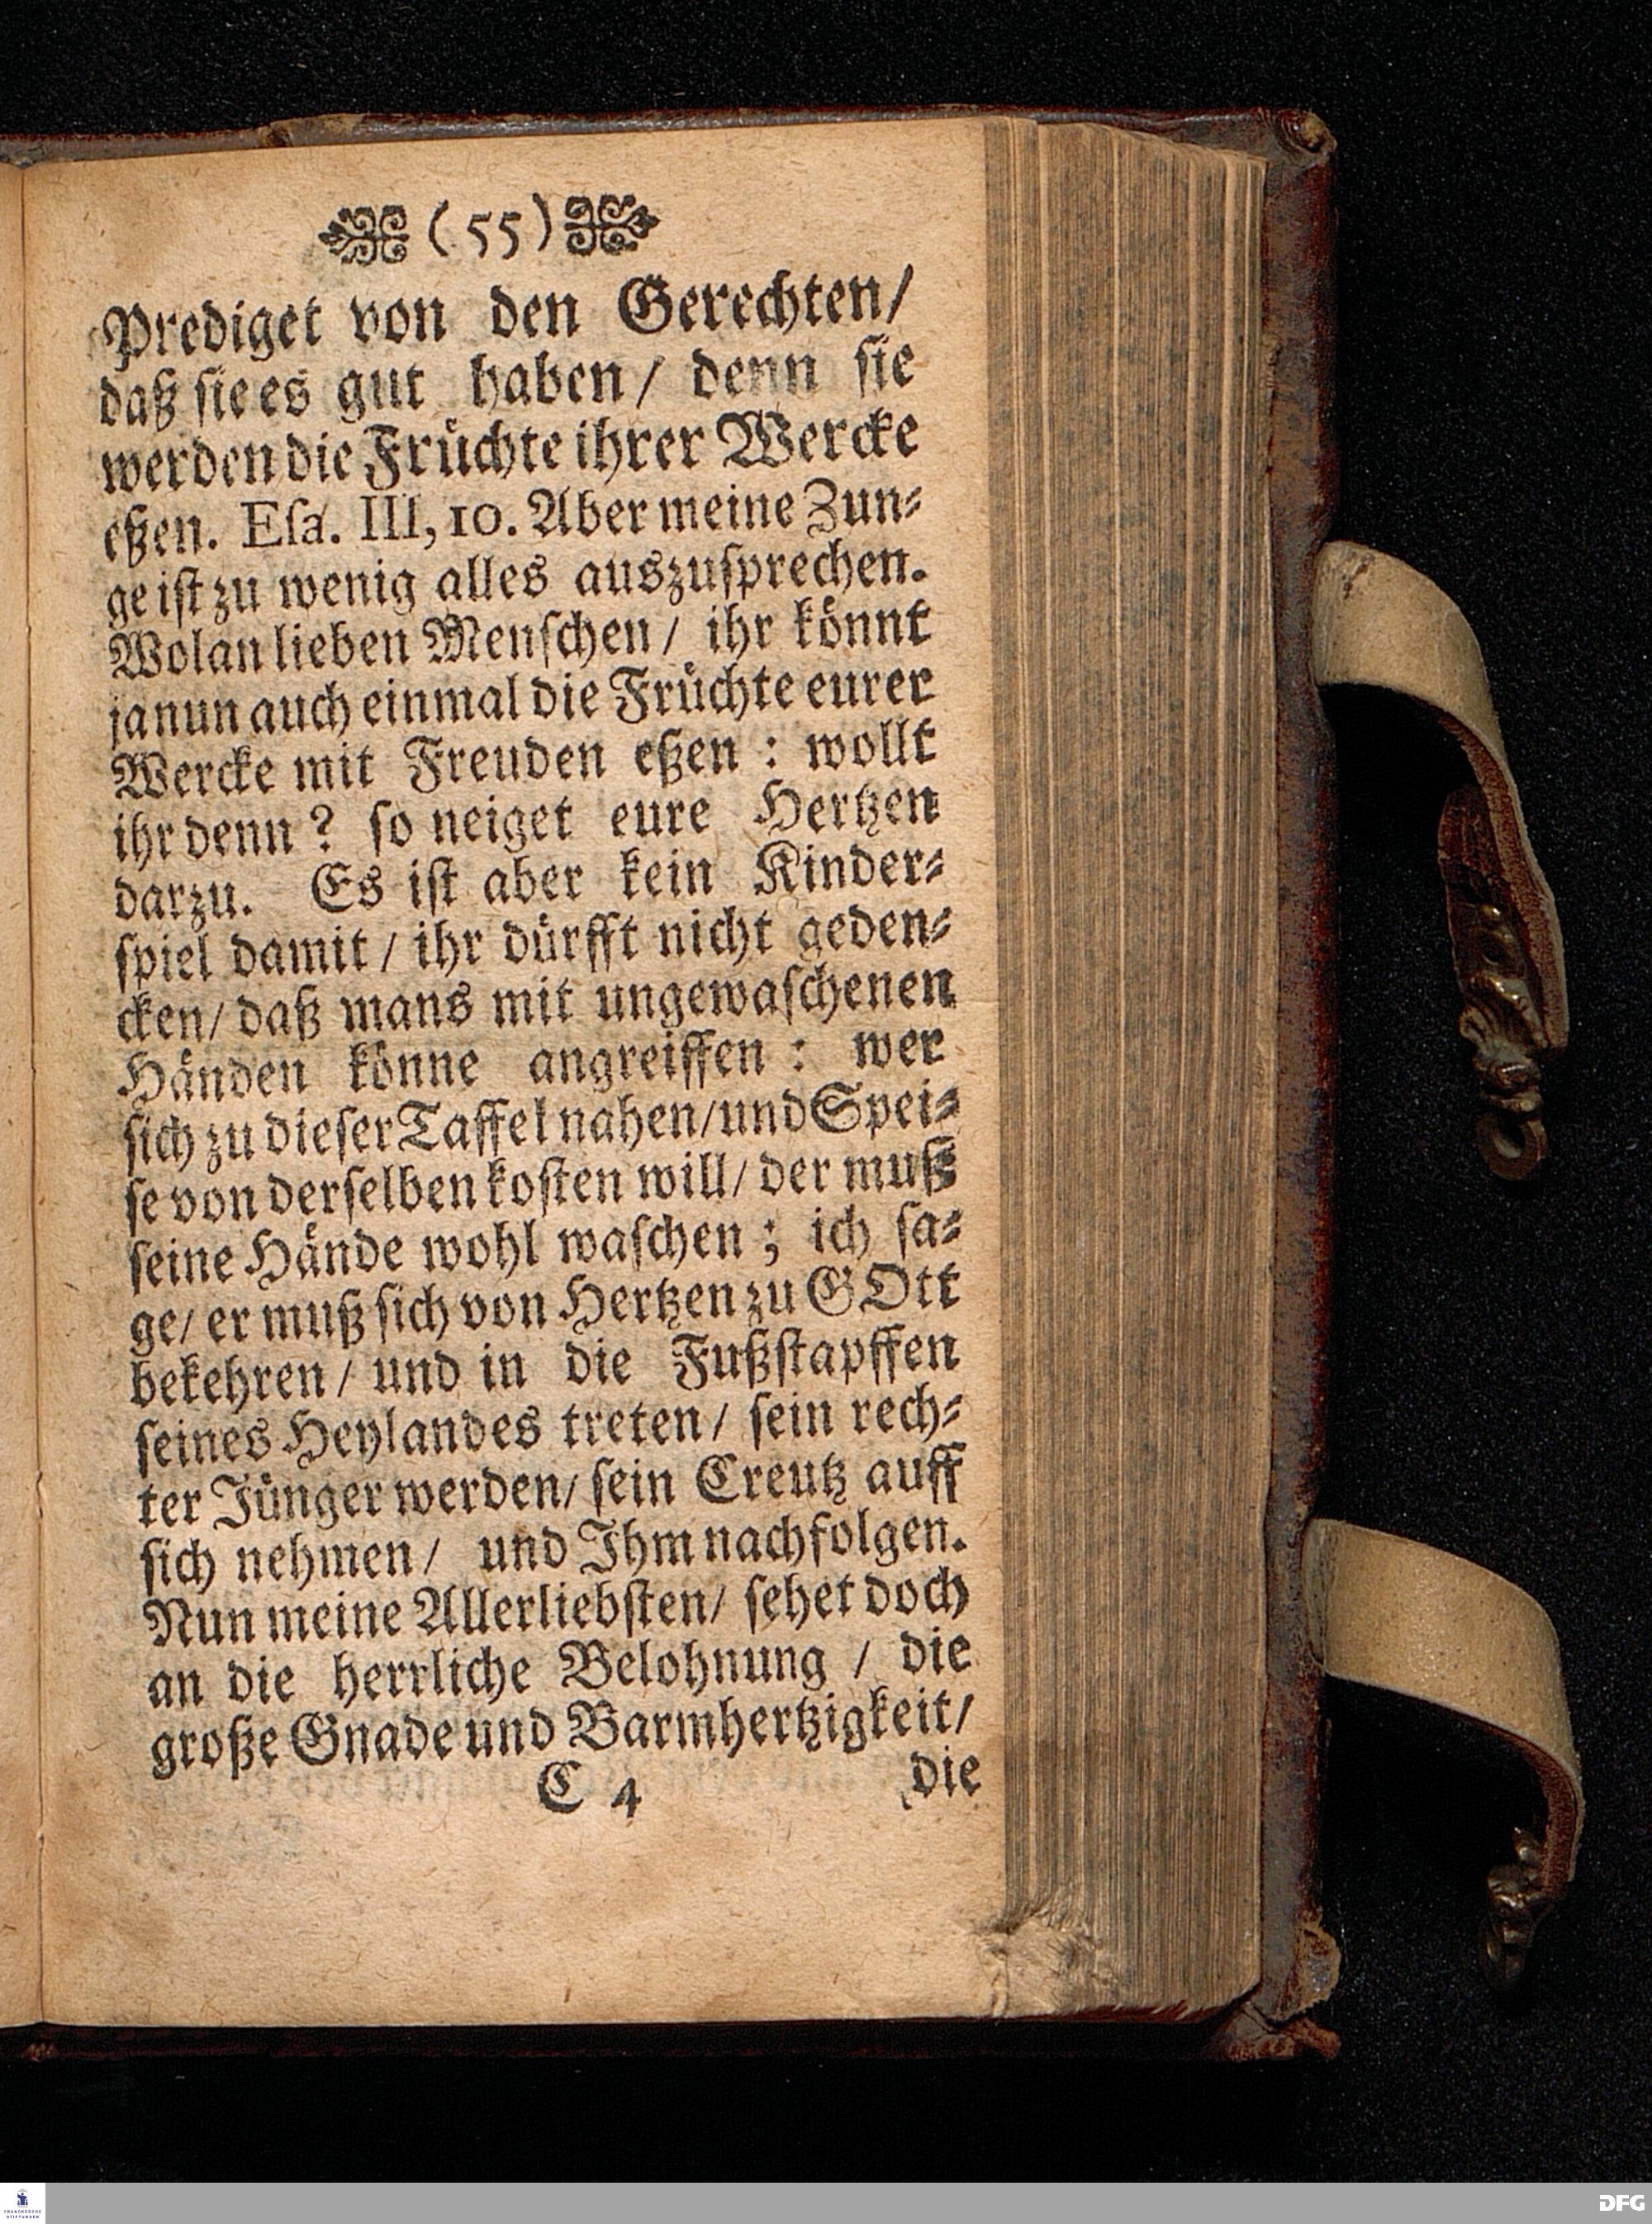 (55)
Prediget von den Gerechten/
daß sie es gut haben/ denn sie
werden die Früchte ihrer Wercke
eßen. Esa. III, 10. Aber meine Zun-
ge ist zu wenig alles auszusprechen.
Wolan lieben Menschen/ ihr könnt
ja nun auch einmal die Früchte eurer
Wercke mit Freuden eßen : wollt
ihr denn ? so neiget eure Hertzen
darzu. Es ist aber kein Kinder-
spiel damit/ ihr dürfft nicht geden-
cken/ daß mans mit ungewaschenen
Händen könne angreiffen : wer
sich zu dieser Taffel nahen/und Spei-
se von derselben kosten will/ der muß
seine Hände wohl waschen ; ich sa-
ge/ er muß sich von Hertzen zu GOtt
bekehren/ und in die Fußstapffen
seines Heylandes treten/ sein rech-
ter Jünger werden/ sein Creutz auff
sich nehmen/ und Ihm nachfolgen.
Nun meine Allerliebsten/ sehet doch
an die herrliche Belohnung / die
große Gnade und Barmhertzigkeit/
C 4 die
FRANCKESCHE
STIFTUNGEN
DFG